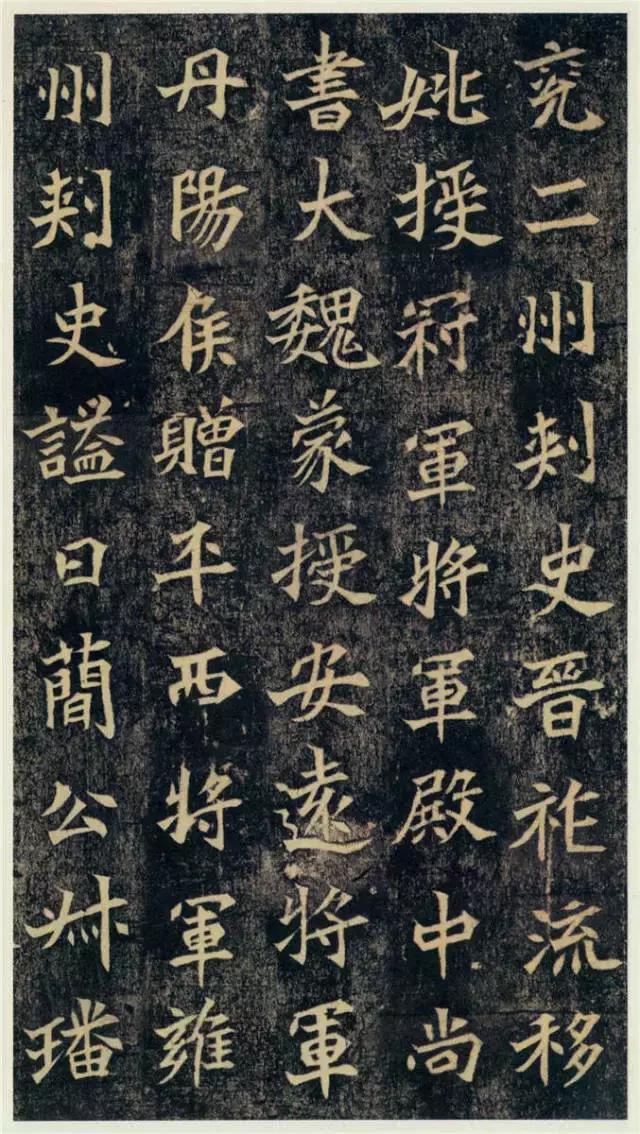 兖二州刾史晋祚流移
姚授冠軍將軍殿中尚
書大魏蒙授安遠將軍
丹陽侯贈平西將軍雍
州刾史謚曰蕑公叔璠